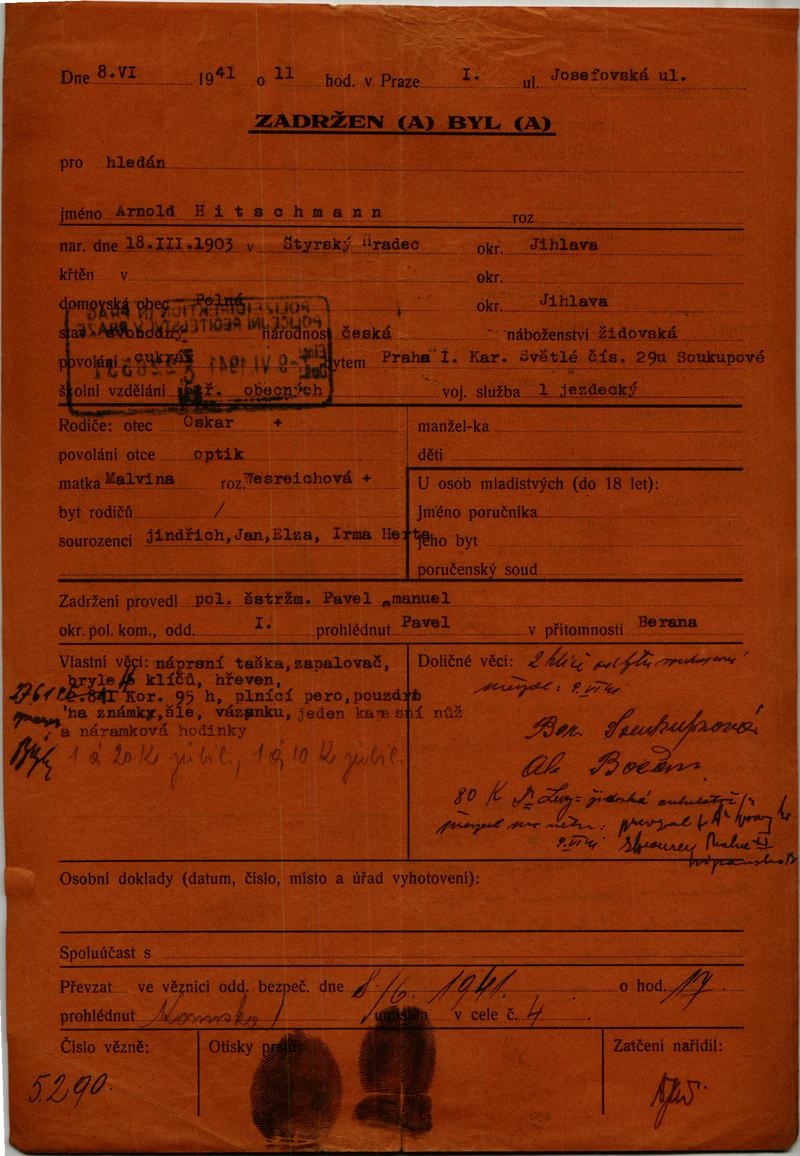 Dne 8.VI 1941 o 11 hod. v Praze I. ul. Josefovská ul.
ZADRŽEN (A) BYL (A)
pro hledán
jméno Arnold Hitschmann roz
nar. dne 18.III.1903 v Štyrský Hradec okr. Jihlava
křtěn v okr.
domovská obec Polná okr. Jihlava
stav svobodný národnost česká náboženství židovská
povolání cukrář bytem Praha I. Kar. Světlé čís. 29u Soukupové
školní vzdělání obecných voj. služba 1 jezdecký
POLIZEIDIREKTION IN PRAG
POLICEJNÍ ŘEDITELSTVÍ V PRAZE
-9 VI 1941
Rodiče: otec Oskar + manžel-ka
povolání otce optik děti
matka Malvina roz. Wesreichová + U osob mladistvých (do 18 let):
byt rodičů / Jméno poručníka
sourozenci jindřich, Jan, Elza, Irma Herta jeho byt
poručenský soud
Zadržení provedl pol. šstržm. Pavel „manuel
okr. pol. kom., odd. I. prohlédnut Pavel v přítomnosti Berana
Vlastní věci: náprsní taška, zapalovač,
bryle klíčů, hřeven,
Kor. 95 h, plnící pero, pouzdro
na známky, šle, vázanku, jeden kapesní nůž
a náramková hodinky
1 á 20 K jubil., 1 á 10 K jubil.
Doličné věci: 2 klíče od bytu
Ber. Soukupová
80 K
převzal
Osobní doklady (datum, číslo, místo a úřad vyhotovení):
Spoluúčast s
Převzat ve věznici odd. bezpeč. dne 8/6. 1941. o hod. 17.
prohlédnut umístěn v cele č. 4
Číslo vězně: Otisky prstů: Zatčení nařídil:
5290.